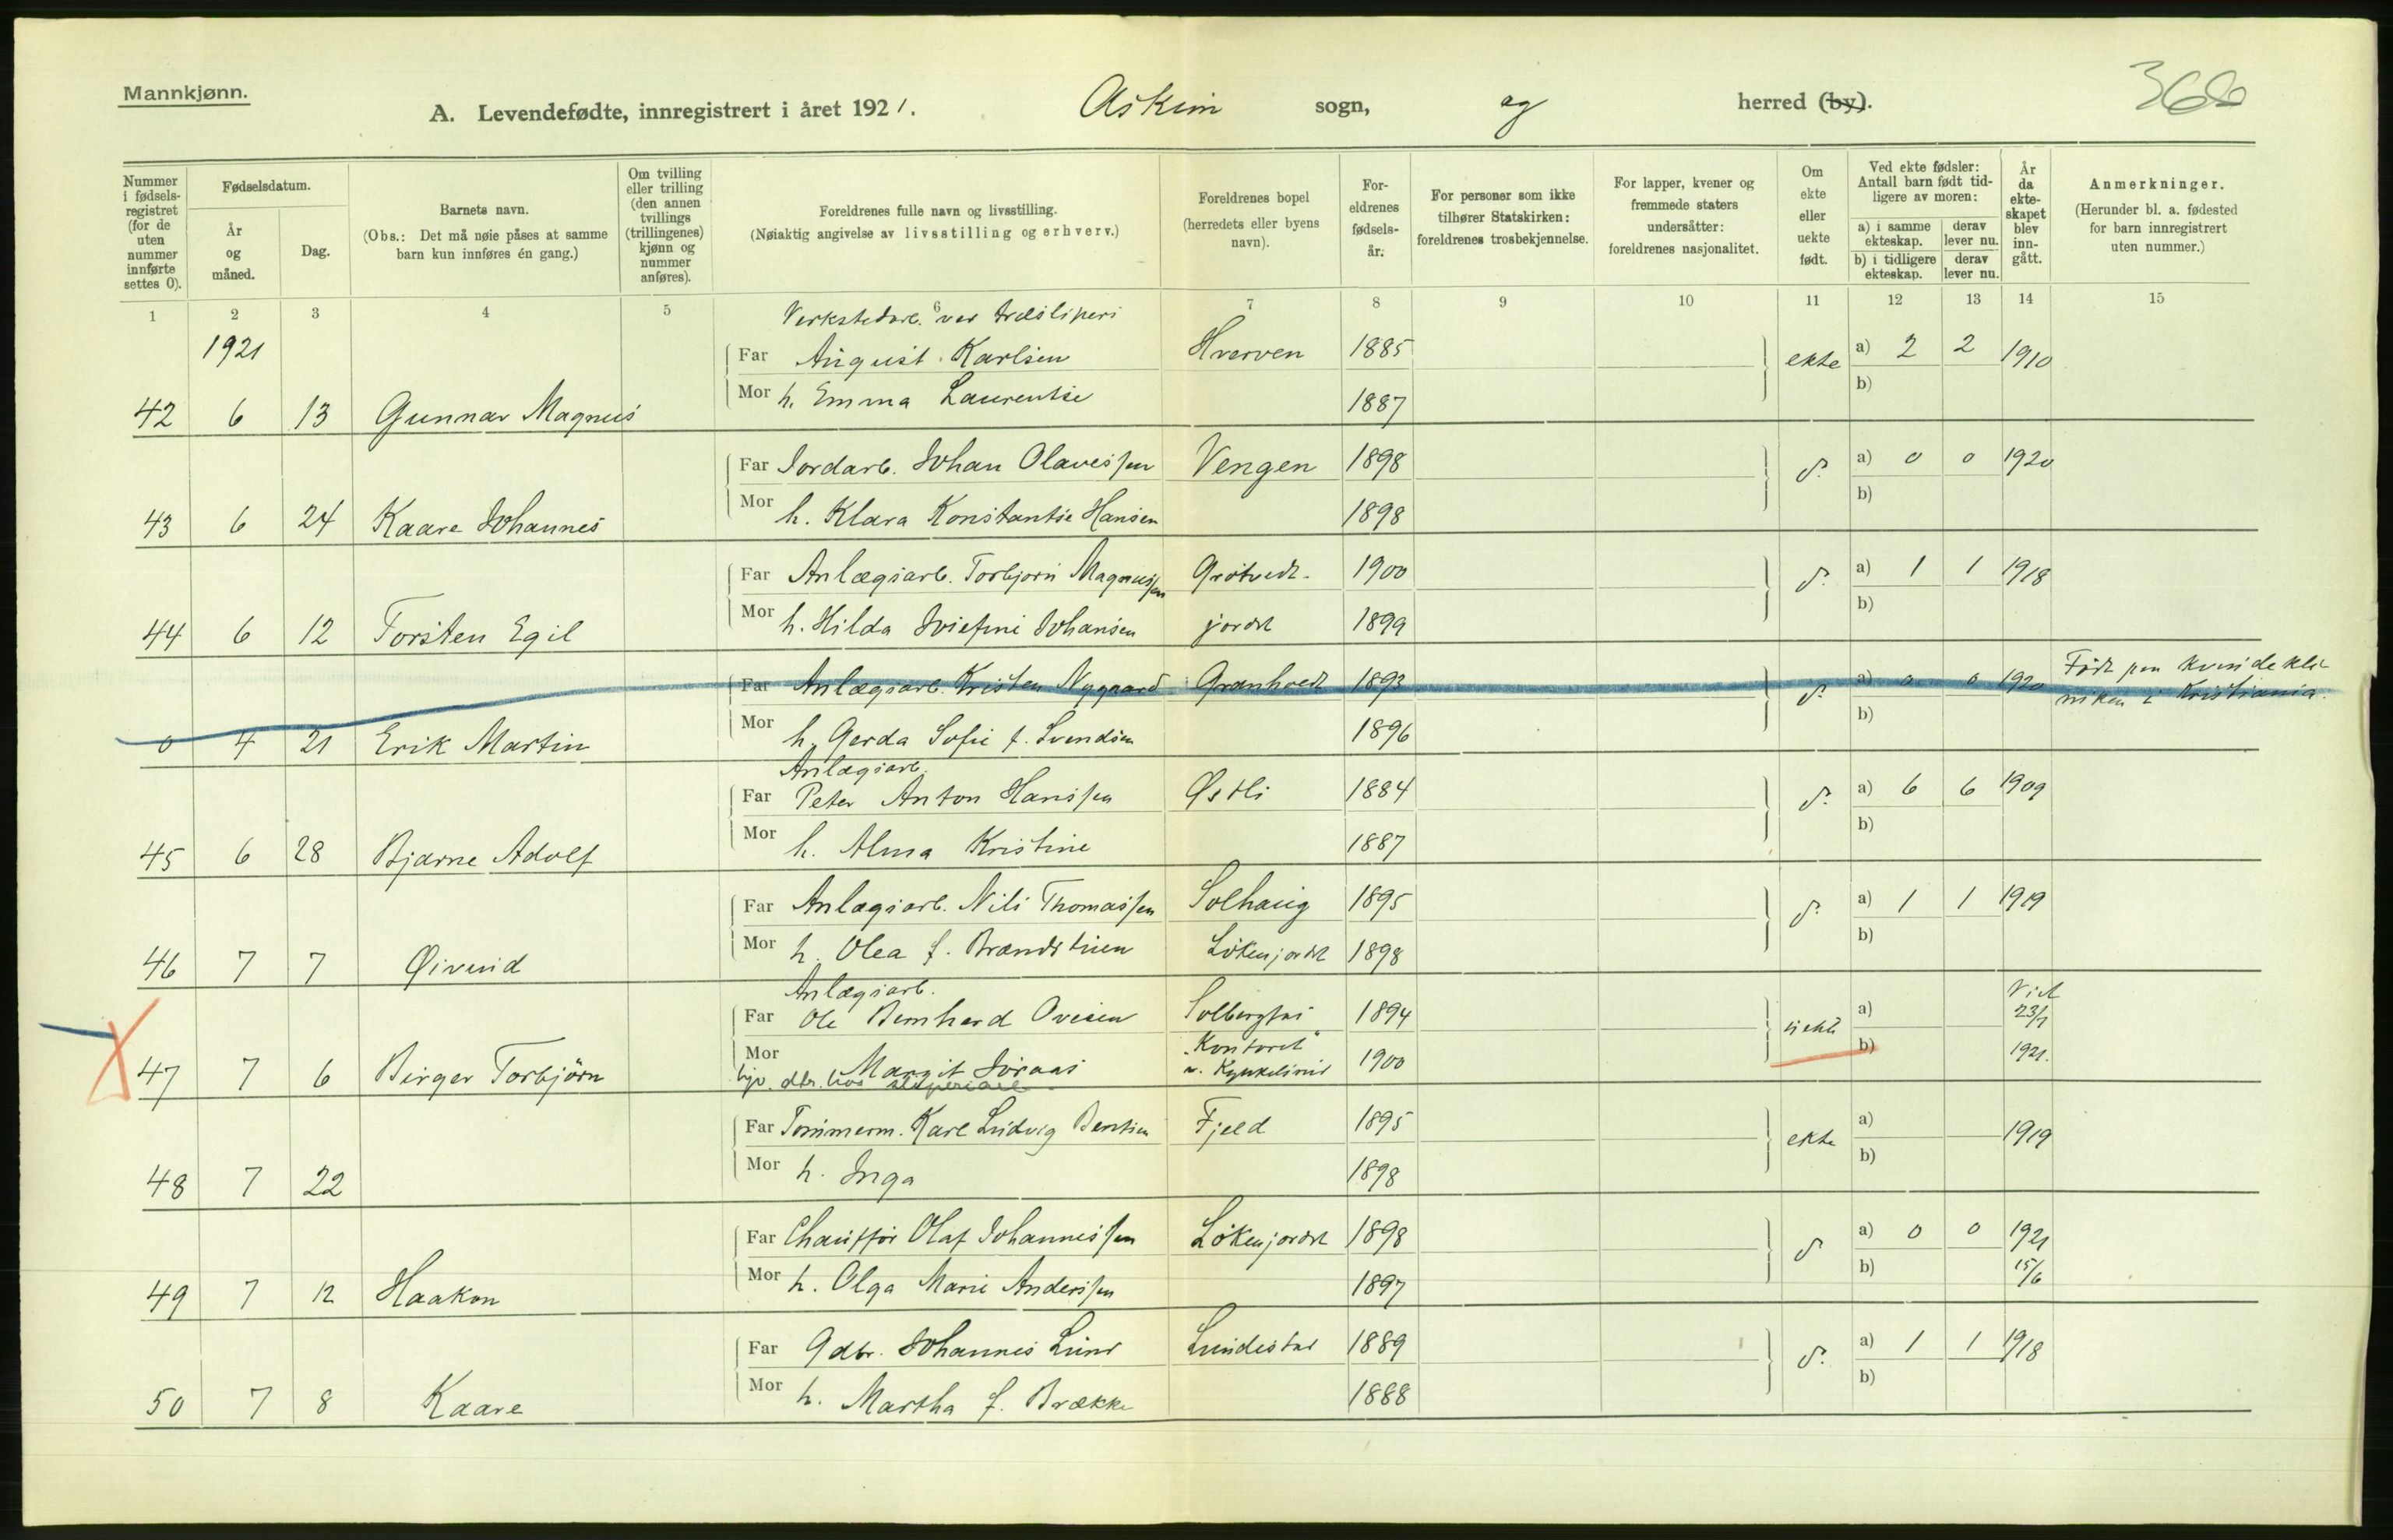 Mannkjønn.
A. Levendefødte, innregistrert i året 1921. Askim sogn, og herred (by).
366
Nummer i fødselsregistret (for de uten nummer innførte settes 0).
Fødselsdatum.
År og måned.
Dag.
Barnets navn.
(Obs.: Det må nøie påses at samme barn kun innføres én gang.)
Om tvilling eller trilling (den annen tvillings (trillingenes) kjønn og nummer anføres).
Foreldrenes fulle navn og livsstilling.
(Nøiaktig angivelse av livsstilling og erhverv.)
Foreldrenes bopel (herredets eller byens navn).
Foreldrenes fødselsår.
For personer som ikke tilhører Statskirken: foreldrenes trosbekjennelse.
For lapper, kvener og fremmede staters undersåtter: foreldrenes nasjonalitet.
Om ekte eller uekte født.
Ved ekte fødsler: Antall barn født tidligere av moren:
a) i samme ekteskap. derav lever nu.
b) i tidligere ekteskap. derav lever nu.
År da ekteskapet blev inngått.
Anmerkninger.
(Herunder bl. a. fødested for barn innregistrert uten nummer.)
1 2 3 4 5 6 7 8 9 10 11 12 13 14 15
1921
Verkstedarb. ved træsliperi
Far August Karlsen Hverven 1885 ekte a) 2 2 1910
42 6 13 Gunnar Magnus Mor h. Emma Laurentse 1887 b)
Far Jordarb. Johan Olavessen Vengen 1898 d. a) 0 0 1920
43 6 24 Kaare Johannes Mor h. Klara Konstantse Hansen 1898 b)
Far Anlægsarb. Torbjørn Magnussen Grøtvedt- 1900 d. a) 1 1 1918
44 6 12 Torsten Egil Mor h. Hilda Josefine Johansen jordet 1899 b)
Far Anlægsarb. Kristen Nygaard Granholt 1893 d. a) 0 0 1920 Født paa kvindekli-
niken i Kristiania.
0 4 21 Erik Martin Mor h. Gerda Sofie f. Svendsen 1896 b)
Anlægsarb.
Far Peter Anton Hanssen Østli 1884 d. a) 6 6 1909
45 6 28 Bjarne Adolf Mor h. Alma Kristine 1887 b)
Far Anlægsarb. Nils Thomassen Solhaug 1895 d. a) 1 1 1919
46 7 7 Øivind Mor h. Olea f. Brandstuen Løkenjordet 1898 b)
Anlægsarb.
Far Ole Bernhard Ovesen 1894 uekte a) Viet 23/7 1921.
47 7 6 Birger Torbjørn Mor Margit "Kontoret" 1900 b)
Far Tømmerm. Karl Ludvig Bentsen Fjeld 1895 ekte a) 1919
48 7 22 Mor h. Inga 1898 b)
Far Chauffør Olaf Johannessen Løkenjordet 1898 d. a) 0 0 1921
15/6
49 7 12 Haakon Mor h. Olga Marie Anderssen 1897 b)
Far Gdbr. Johannes Lund Lundestad 1889 d. a) 1 1 1918
50 7 8 Kaare Mor h. Martha f. Brække 1888 b)